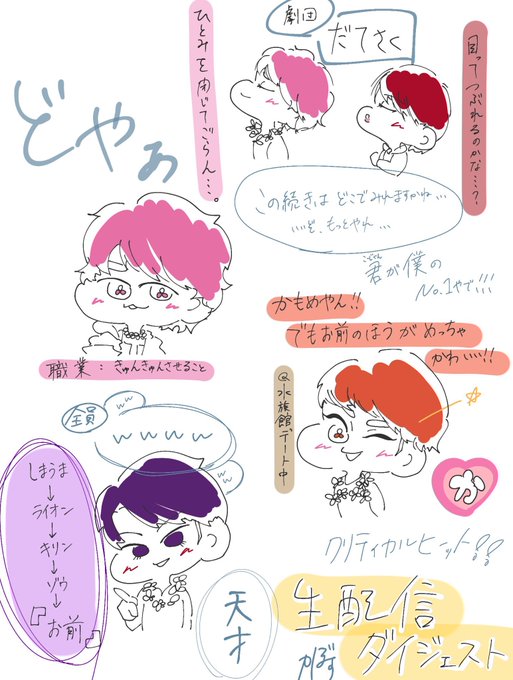 劇団
だてさく
ひとみを閉じてごらん…。
目ってつぶれるのかな…?
どやぁ
この続きは どこでみれますかね…
…ぞ、もっとやれ…
君が僕の
No.1やで!!!
かもめやん!!
でもお前のほうがめっちゃ
かわいい!!
職業:きゅんきゅんさせること
@水族館デート中
全員
ww
wwww
w
w
しまうま
↓
ライオン
↓
キリン
↓
ゾウ
↓
『お前』
か
クリティカルヒット!!
天才
生配信
ダイジェスト